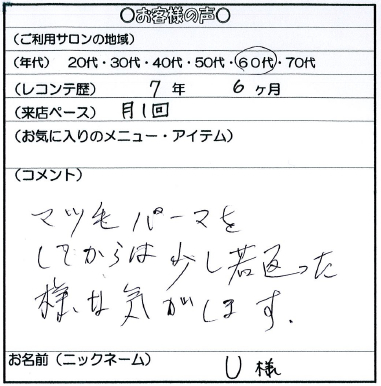 ○お客様の声○
(ご利用サロンの地域)
(年代) 20代・30代・40代・50代・60代・70代
(レコンテ歴) 7年 6ヶ月
(来店ペース) 月1回
(お気に入りのメニュー・アイテム)
(コメント)
マツ毛パーマを
してからは少し若返った
様な気がします.
お名前(ニックネーム) U 様